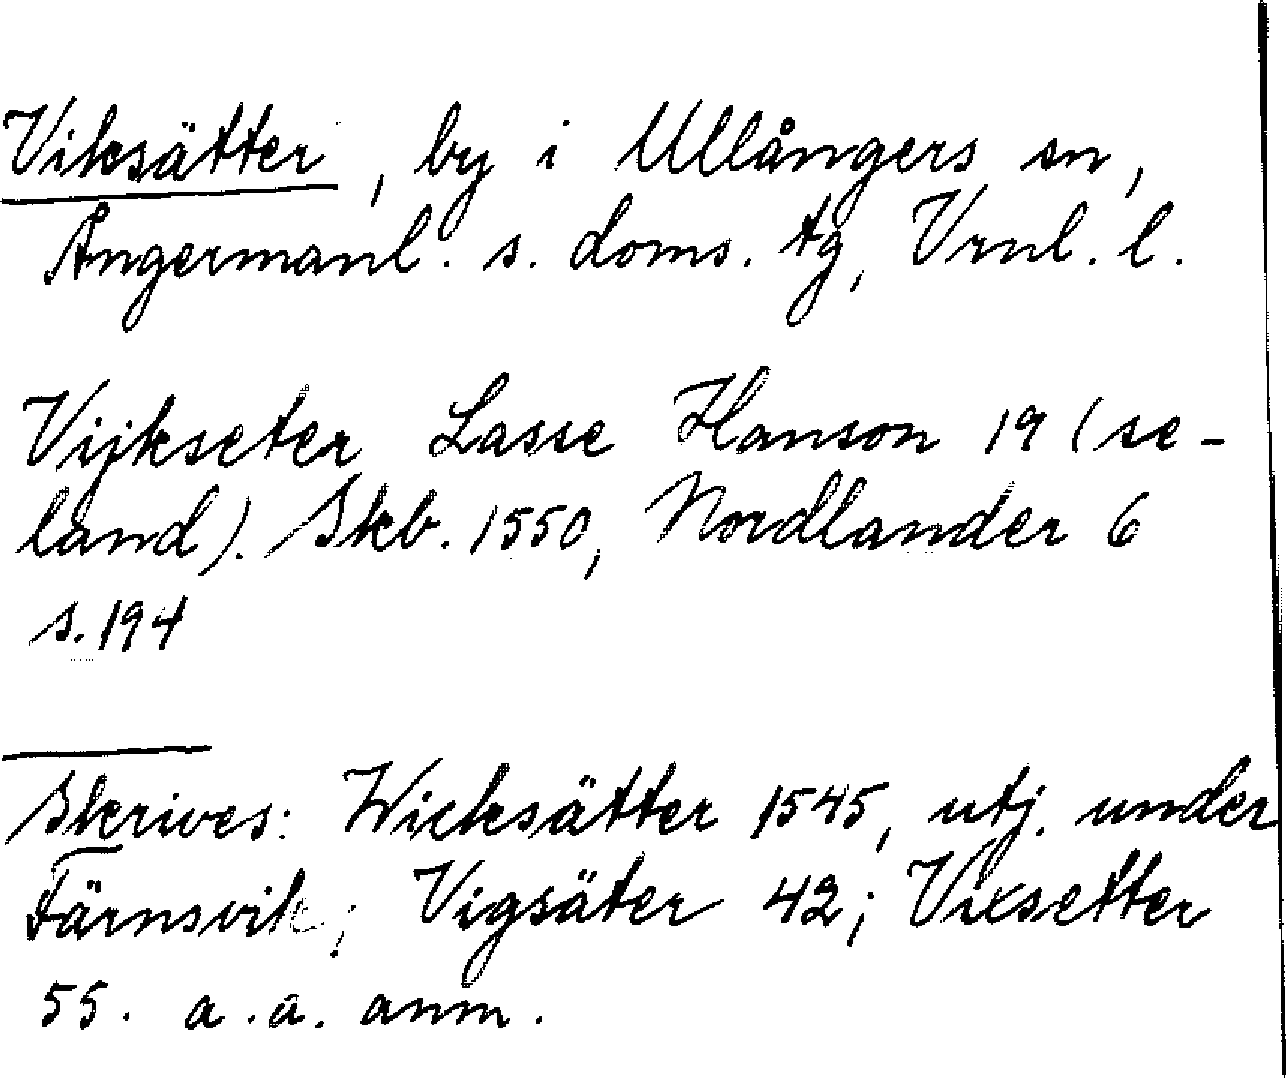 Viksätter, by i Ullångers sn,
Ångermanl. s. doms. tg, Vrnl. l.
Vijkseter Lasse Hanson 19 (se-
land). Skb. 1550, Nordlander 6
s. 194
Skrives: Wicksätter 1545, utj. under
Färnsvik; Vigsäter 42; Vixsetter
55. a. a. anm.